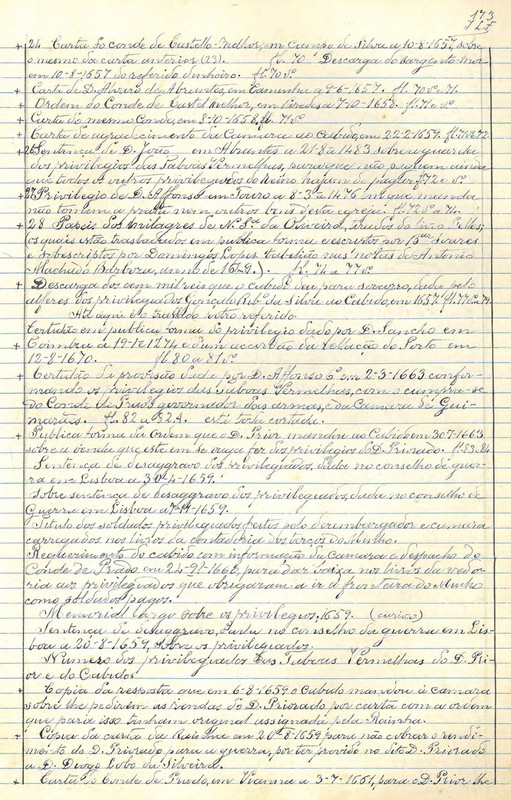 173
+ 24 Carta do conde de Castello-Melhor, em campo de Silva a 10-8-1657, sobre
o mesmo da carta anterior (23). fl. 70 Descarga do Sargento-mor
em 10-8-1657 do referido dinheiro. fl. 70 vº
+ Carta de D. Alvaro de Abranches, em Caminha a 9-6-1657. fl. 70 vº 71.
+ Ordem do Conde de Castel Melhor, em a 7-10-1658. fl. 71 e vº
+ Carta do mesmo Conde, em 8-10-1658, fl. 71 vº
+ Carta de agradecimento da Camara ao Cabido, em 22-2-1659. fl. 71 vº 72
+ 26 Sentença de D. João em Abrantes a 21-8-1483 sobre a guarda
dos privilegios das Taboas Vermelhas, para que não paguem ainda
que todos os outros privilegiados do Reino hajam de pagar. fl. 72 e vº
+ 27 Privilegio de D. Affonso em Touro a 8-3-1476 em que manda
não tomem a prata nem outros bens desta egreja. fl. 72 vº a 74.
+ 28 Papeis dos milagres de N. Srª da Oliveira, tirados do
(os quaes estão trasladados em publica forma e escriptos por Tavares
e sobescriptos por Domingos Lopes, tabelião nas notas de Antonio
Machado Barbosa, anno de 1645.). fl. 74 a 77 vº
+ Descarga dos cem mil réis que o cabido deu para soccorro, dada pelo
alferes dos privilegiados Gonçalo da Silva ao Cabido, em 1657 fl. 77 vº 79.
Até aqui é o traslado retro referido.
Certidão em publica forma do privilegio dado por D. Sancho em
+ Coimbra a 19-12-1274 e d'um accordão da Rellação do Porto em
12-8-1670. fl. 80 a 81 vº
+ Certidão da provisão dada por D. Affonso 6º em 2-3-1663 confir-
mando os privilegios das Taboas Vermelhas, com o cumpra-se
do Conde do Prado governador das armas, e da Camara de Gui-
marães. fl. 82 a 82 A. está toda cortada.
+ Publica forma da Ordem que o D. Prior mandou ao Cabido em 30-7-1663
sobre a vinda que este em se vaga fez dos privilegios do D. Priorado. fl. 83, 84
Sentença de desaggravo dos privilegiados, dada no conselho de guer-
ra em Lisboa a 30-4-1659.
Sobre sentença de desaggravo dos privilegiados, dada no conselho de
Guerra em Lisboa a -1659.
Titulo dos soldados privilegiados feitos pelo desembargador e camara
carregados nos livros da contadoria dos terços do Minho.
Requerimento do cabido com informação da Camara e despacho do
Conde de Prado em 1662, para dar baixa nos livros da vedo-
ria aos privilegiados que obrigaram a ir á fronteira do Minho
como soldados pagos.
Memorial largo sobre os privilegios, 1659. (curioso)
Sentença de desaggravo, dada no conselho da guerra em Lis-
boa a 20-8-1659, sobre os privilegiados.
Numero dos privilegiados das Taboas Vermelhas do D. Pri-
or e do Cabido.
+ Copia da resposta que em 6-8-1659 o Cabido mandou á camara
sobre lhe pedirem as rondas do D. Priorado por carta com a ordem
que para isso tinham original assignada pela Rainha.
+ Cópia da carta da Rainha em 20-8-1659 para não cobrar o rendi-
mento do D. Priorado para a guerra, por ter provido no dito D. Priorado
a D. Diogo Lobo da Silveira.
+ Carta do Conde de Prado, em Vianna a 3-7-1661, para o D. Prior lhe